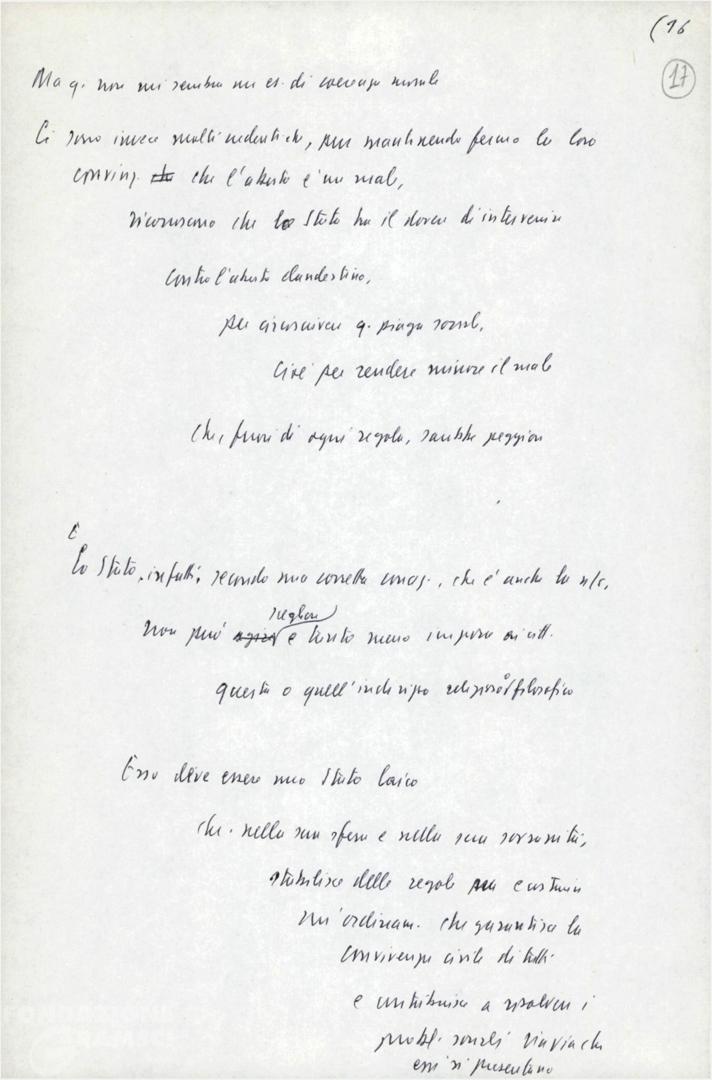 (16
17
Ma q. non mi sembra un es. di coerenza morale
Ci sono invece molti credenti che, pur mantenendo fermo la loro
convinz. che l'aborto è un male,
riconoscono che lo Stato ha il dovere di intervenire
contro l'aborto clandestino,
per circoscrivere q. piaga sociale,
cioè per rendere minore il male
che, fuori di ogni regola, sarebbe peggiore
È
Lo Stato, infatti, secondo una corretta concez., che è anche la n/s,
scegliere
non può agire e tanto meno imporre ai citt.
questo o quell'indirizzo religioso o filosofico
Esso deve essere uno Stato laico
che nella sua sfera e nella sua sovranità,
stabilisce delle regole per costruire
un'ordinam. che garantisca la
convivenza civile di tutti
e contribuisca a risolvere i
probl. sociali via via che
essi si presentano